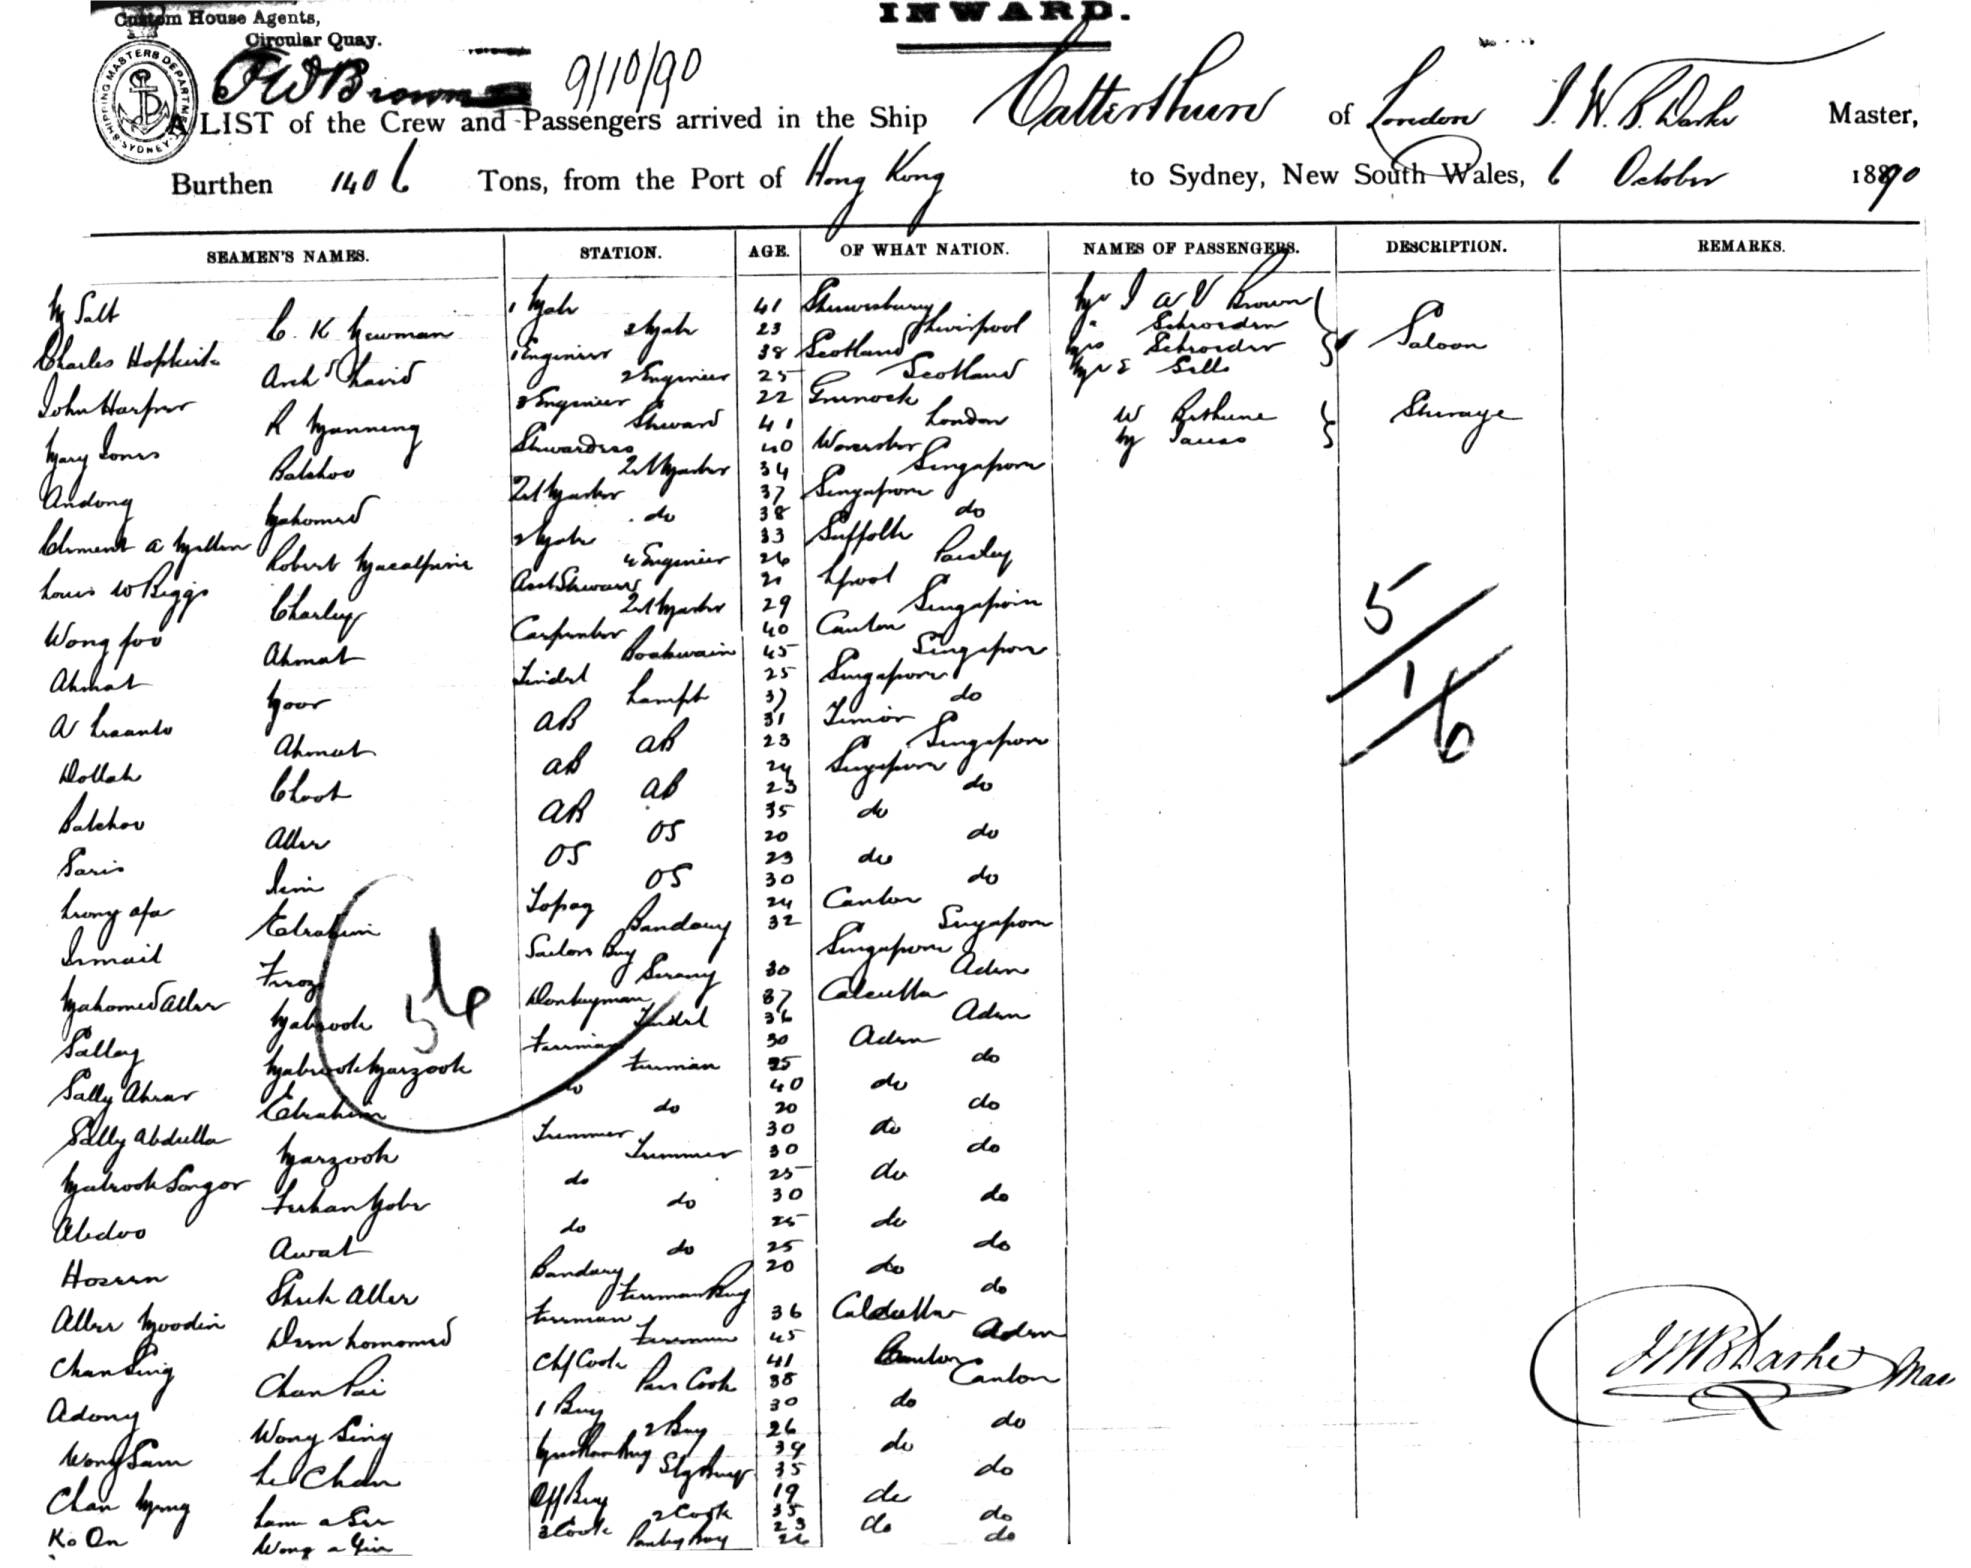 INWARD.
Custom House Agents,
Circular Quay.
SHIPPING MASTERS DEPARTMENT SYDNEY
F W Brown
9/10/90
A LIST of the Crew and Passengers arrived in the Ship Catterthun of London J. W. B. Darke Master,
Burthen 1406 Tons, from the Port of Hong Kong to Sydney, New South Wales, 6 October 1890
SEAMEN'S NAMES. STATION. AGE. OF WHAT NATION. NAMES OF PASSENGERS. DESCRIPTION. REMARKS.
M Salt 1 Mate 41 Shrewsbury Mr J W V Brown
C. K Newman 2 Mate 23 Liverpool " Schroeder
Charles Hopkirk 1 Engineer 38 Scotland Mrs Schroeder Saloon
Archd Laird 2 Engineer 25 Scotland Mr E Gills
John Harper 3 Engineer 22 Greenock
R Manning Steward 41 London W Bethune Steerage
Mary Jones Stewardess 40 Worcester
Balchoo 2nd Master 34 Singapore
Andong 2nd Master 37 Singapore
Mahomed do 38 do
Clement A Mellen 2 Mate 33 Suffolk
Robert Macalpine 4 Engineer 26 Paisley
Louis W Biggs Asst Steward 21 Lpool
Charley 2nd Master 29 Singapore
Wong foo Carpenter 40 Canton
Ahmat Boatswain 45 Singapore
Ahmat Tindel 25 Singapore
Noor Lampt 37 do
AB 31 Timor
Ahmat AB 23 Singapore
Dollah AB 24 Singapore
Choot AB 23 do
Balchoo AB 35 do
Aller OS 20 do
Saris OS 23 do
OS 30 do
Topaz 24 Canton
Ebrahim Bandary 32 Singapore
Ismail Sailors Boy Singapore
Feroz Serang 30 Aden
Mahomed Aller Donkeyman 37 Calcutta
Mabrook Tindel 36 Aden
Salley Fireman 30 Aden
Mabrook Marzook Fireman 25 do
Sally do 40 do
Ebrahim do 20 do
Sally Abdulla Trimmer 30 do
Marzook Trimmer 30 do
Mabrook do 25 do
Ferhan do 30 do
Abdoo do 25 do
Awat do 25 do
Hoseen Bandary 20 do
Shek Aller Firemans Boy do
Aller Moodin Fireman 36 Calcutta
Fireman 45 Aden
Chan Sing Chf Cook 41 Canton
Chan Pai Pass Cook 38 Canton
Adong 1 Boy 30 do
Wong Sing 2 Boy 26 do
Wong Sam 39 do
Le Chan 35 do
Chan Off Boy 19 do
Lam a See 2 Cook 35 do
Ko On 3 Cook 23 do
Wong a Yin Pantry Boy 26 do
56
5
1
6
J W B Darke Mas